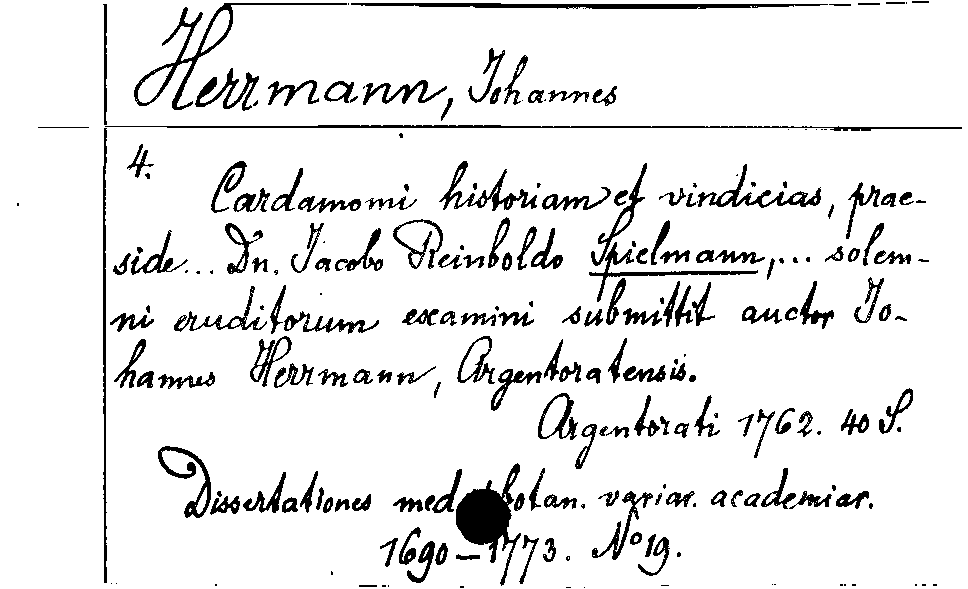 Herrmann, Johannes
4.
Cardamomi historiam et vindicias, prae-
side... Dn. Jacobo Reinboldo Spielmann,... solem-
ni eruditorum examini submittit auctor Jo-
hannes Herrmann, Argentoratensis.
Argentorati 1762. 40 S.
Dissertationes med botan. variar. academiar.
1690-1773. No 19.